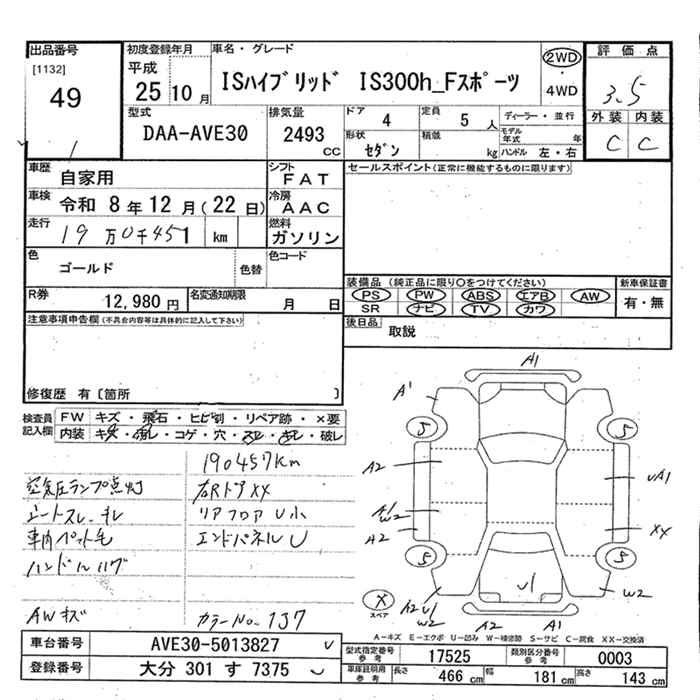 出品番号
[1132]
49
初度登録年月
平成
25 10 月
車名・グレード
ISハイブリッド IS300h_Fスポーツ
2WD
・
4WD
評価点
3.5
外装 内装
C C
型式
DAA-AVE30
排気量
2493
CC
ドア 4
定員 5 人
形状 セダン
積載 kg
ディーラー・並行
モデル年式 年
ハンドル 左・右
車歴
自家用
シフト
FAT
セールスポイント(正常に機能するものに限ります)
車検
令和 8 年 12 月(22 日)
冷房
AAC
走行
19 万0千451 km
燃料
ガソリン
色
ゴールド
色替
色コード
装備品 (純正品に限り○をつけてください)
PS PW ABS エアB AW
SR ナビ TV カワ
新車保証書
有・無
R券
12,980 円
名変通知期限
月 日
後日品 取説
注意事項申告欄(不具合内容等は具体的に記入して下さい)
修復歴 有〔箇所 〕
検査員
記入欄
FW キズ・飛石・ヒビ割・リペア跡・×要
内装 キズ・汚レ・コゲ・穴・スレ・キレ・破レ
190457km
空気圧ランプ点灯
右Rドア XX
シートスレ、キレ
リアフロア U小
車内ペット毛
エンドパネル U
ハンドルハゲ
AWキズ
カラーNo. 137
A1
A'
5
5
A2
UA1
A1
W2
A2
XX
5
5
U1
W2
A2 U1
W2
A2
A1
X
スペア
A-キズ E-エクボ U-凹み W-補修跡 S-サビ C-腐食 XX-交換済
車台番号
AVE30-5013827
登録番号
大分 301 す 7375
型式指定番号
参考
17525
類別区分番号
参考
0003
車庫証明用
参考
長さ 466 cm
幅 181 cm
高さ 143 cm